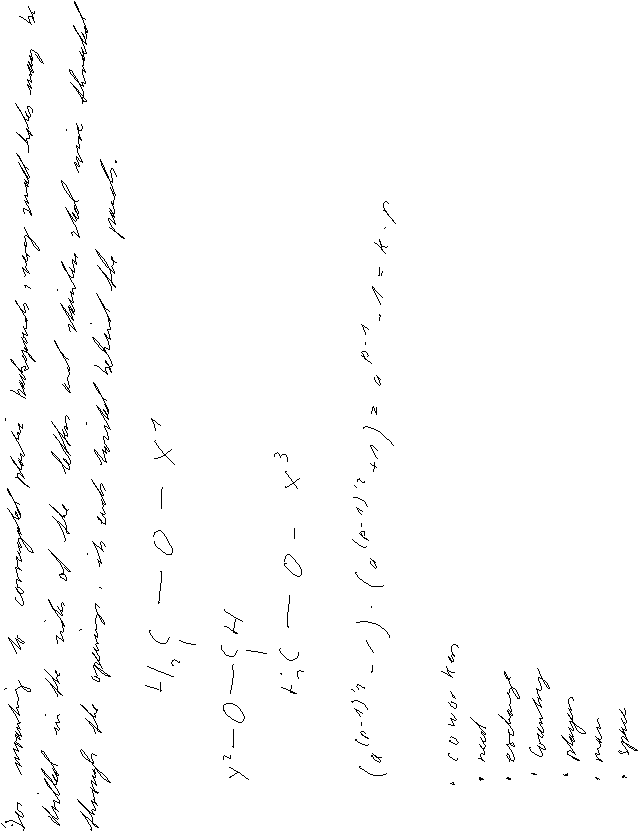 For mounting to corrugated plastic backgrounds, very small holes may be
drilled in the sides of the letters and stainless steel wire threaded
through the openings, its ends twisted behind the panels.
H₂C — O — X¹
y² — O — CH
H₂C — O — X³
(a^(p-1)'² - 1) · (a^(p-1)'² + 1) = a^(p-1) - 1 = k · p
· coworker
· need
· exchange
· Country
· players
· man
· space